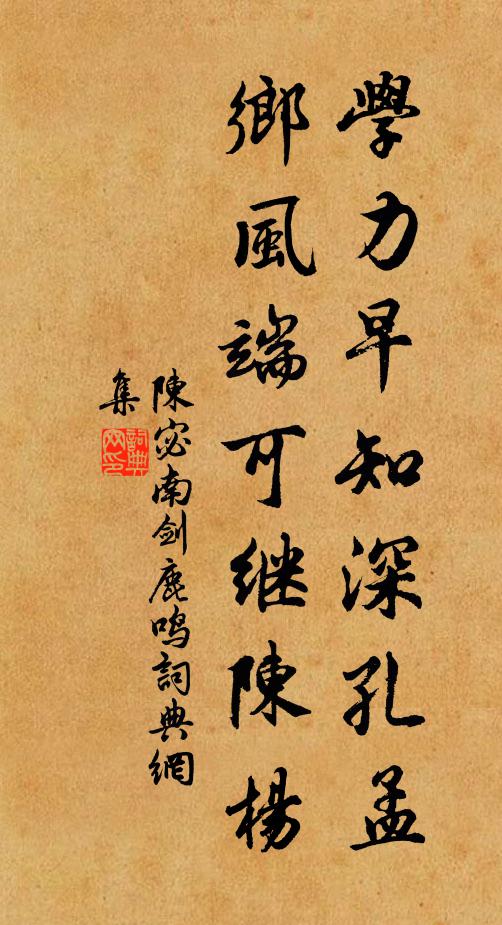 學力早知深孔孟
鄉風端可继陳楊
陳宓南剑鹿鸣詞典網
集
詞典
网印